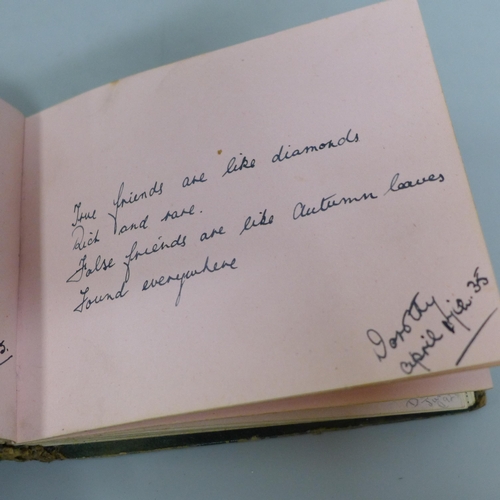 True friends are like diamonds
Rich and rare.
False friends are like Autumn leaves
Found everywhere
Dorothy
April 35
5.